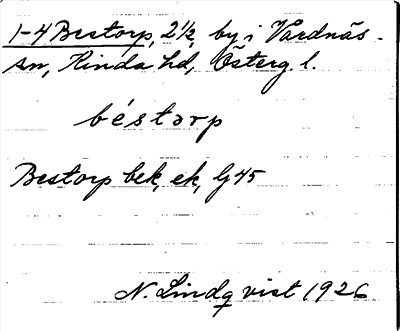 1-4 Bestorp, 2 1/2, by i Vårdnäs
sn, Kinda hd, Österg. l.
béstorp
Bestorp bek, ek, Gj 45
N. Lindqvist 1926